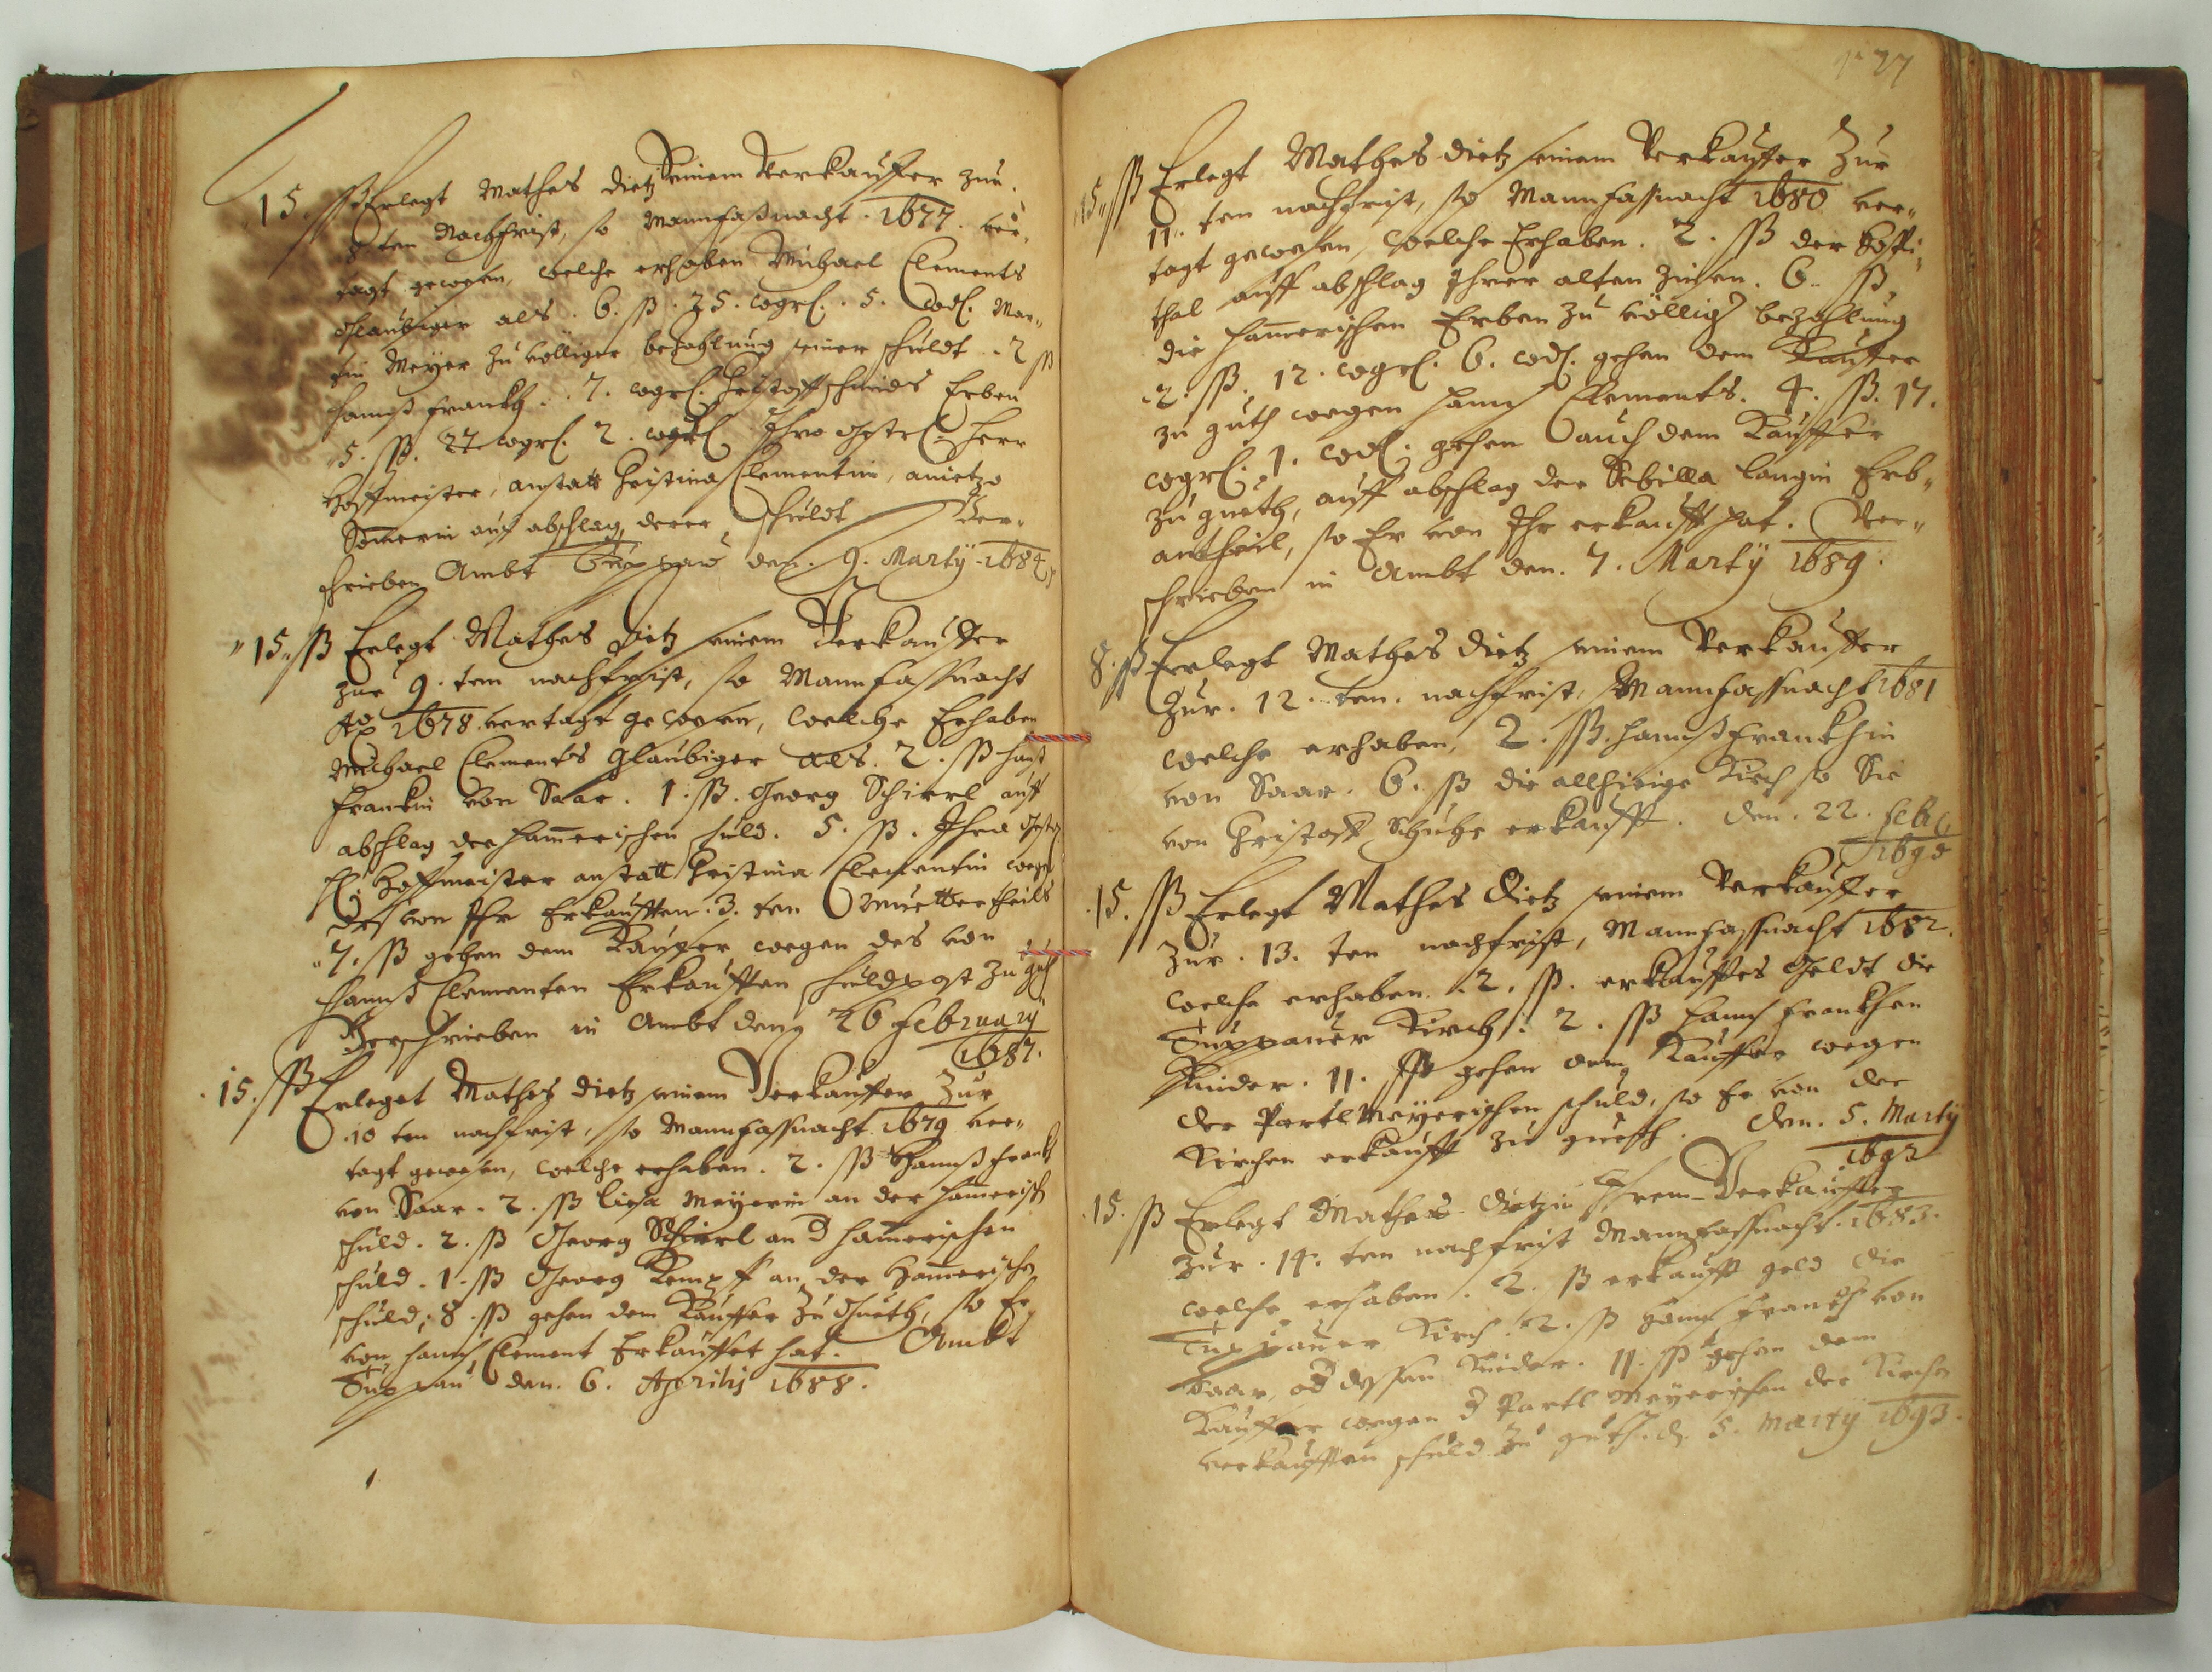 15. ß Erlegt Mathes Dietz Seinem Verkauffer zur.
8 ten Nachfrist, so Mannfaßnacht. 1677. ver„
tagt gewesen, welche erhoben Michael Clements
Glaubiger als. 6. ß. 25. wgrl. 5. wdl. Mar„
tin Meyer zu völliger bezahlung seiner schuldt. 2 ß
Hannß Frankh. 7. wgrl. Christoff Schmids Erben
5. ß. 27 wgrl. 2. Ihro Gstr. Herr
Hoffmeister, anstatt Christina Clementin, anietzo
auf abschlag derer schuldt Ver„
schrieben Ambt Duppau den. 9. Marty 1684
„15„ ß Erlegt Mathes Dietz seinem Verkauffer
zur 9. ten nachfrist, so Mannfassnacht
Ao 1678. vertagt gewesen, welche Erhaben
Michael Clements Glaubiger als. 2. ß Hanß
Frankin von Saar. 1. ß. Georg Schierl auf
abschlag der Ham̅erischen schuld. 5. ß. Ihro Gstr
H. Hoffmeister anstatt Christina Clementin wegen
des von Ihr Erkaufften. 3. ten Muettertheils
„7. ß gehen dem Kauffer wegen des von
Hannß Clementen Erkaufften schuldpost zu guth
Verschrieben in Ambt den 26 February
1687.
. 15. ß Erleget Mathes Dietz seinem Verkauffer Zur
10 ten nachfrist, so Mannfassnacht 1679 ver„
tagt gewesen, welche erhaben. 2. ß Hannß Frankh
von Saar. 2. ß Liesa Meyerin an der Ham̅erisch
schuld. 2. ß Georg Schierl an d Ham̅erischen
schuld. 1. ß Georg Kempf an der Ham̅erischen
schuld; 8. ß gehen dem Kauffer zu Gueth, so Er
von Hannß Clement Erkauffet hat. Ambt
Duppau den. 6. Aprilis 1688.
27
15„ ß Erlegt Mathes Dietz seinem Verkauffer Zur
11. ten nachfrist, so Mannfassnacht 1680 ver„
tagt gewesen, welche Erhaben. 2. ß der Hospi„
thal auff abschlag Ihrer alten Zinsen. 6. ß
die Ham̅erischen Erben zu völliger bezahlung
2. ß. 12. wgrl. 6. wdl. gehen dem Kauffer
zu guth wegen Hannß Clements. 4. ß. 17.
wgrl. 1. wdl. gehen auch dem Kauffer
zu gueth, auff abschlag der Sebilla Langin Erb„
antheil, so Er von Ihr erkaufft hat. Ver„
schrieben in Ambt den. 7. Marty 1689.
8. ß Erlegt Mathes Dietz seinem Verkauffer
Zur. 12. ten. nachfrist, Mannfassnacht 1681
welche erhaben, 2. ß. Hannß Frankhin
von Saar. 6. ß die allhiesige Kirch so Sie
von Christoff Schuhe erkaufft. den. 22. Feb
1690
. 15. ß Erlegt Mathes Dietz seinem Verkauffer
Zur. 13. ten nachfrist, Mannfassnacht 1682.
welche erhaben. 2. ß. erkaufftes Geldt die
Duppauer Kirch. 2. ß Hannß Frankhen
Kinder. 11. ß gehen dem Kauffer wegen
der Partl Meyerischen schuld, so Er von der
Kirchen erkaufft zu gueth. den. 5. Marty
1692
. 15. ß Erlegt Mathes Dietzin Ihrem Verkauffer
Zur. 14. ten nachfrist Mannfassnacht. 1683.
welche erhaben. 2. ß erkaufft geld die
Duppauer Kirch. 2. ß Hannß Frankh von
Saar, od dessen Kinder. 11. ß gehen dem
Kauffer wegen d Partl Meyerischen der Kirchen
verkaufften schuld zu guth. d. 5. Marty 1693.